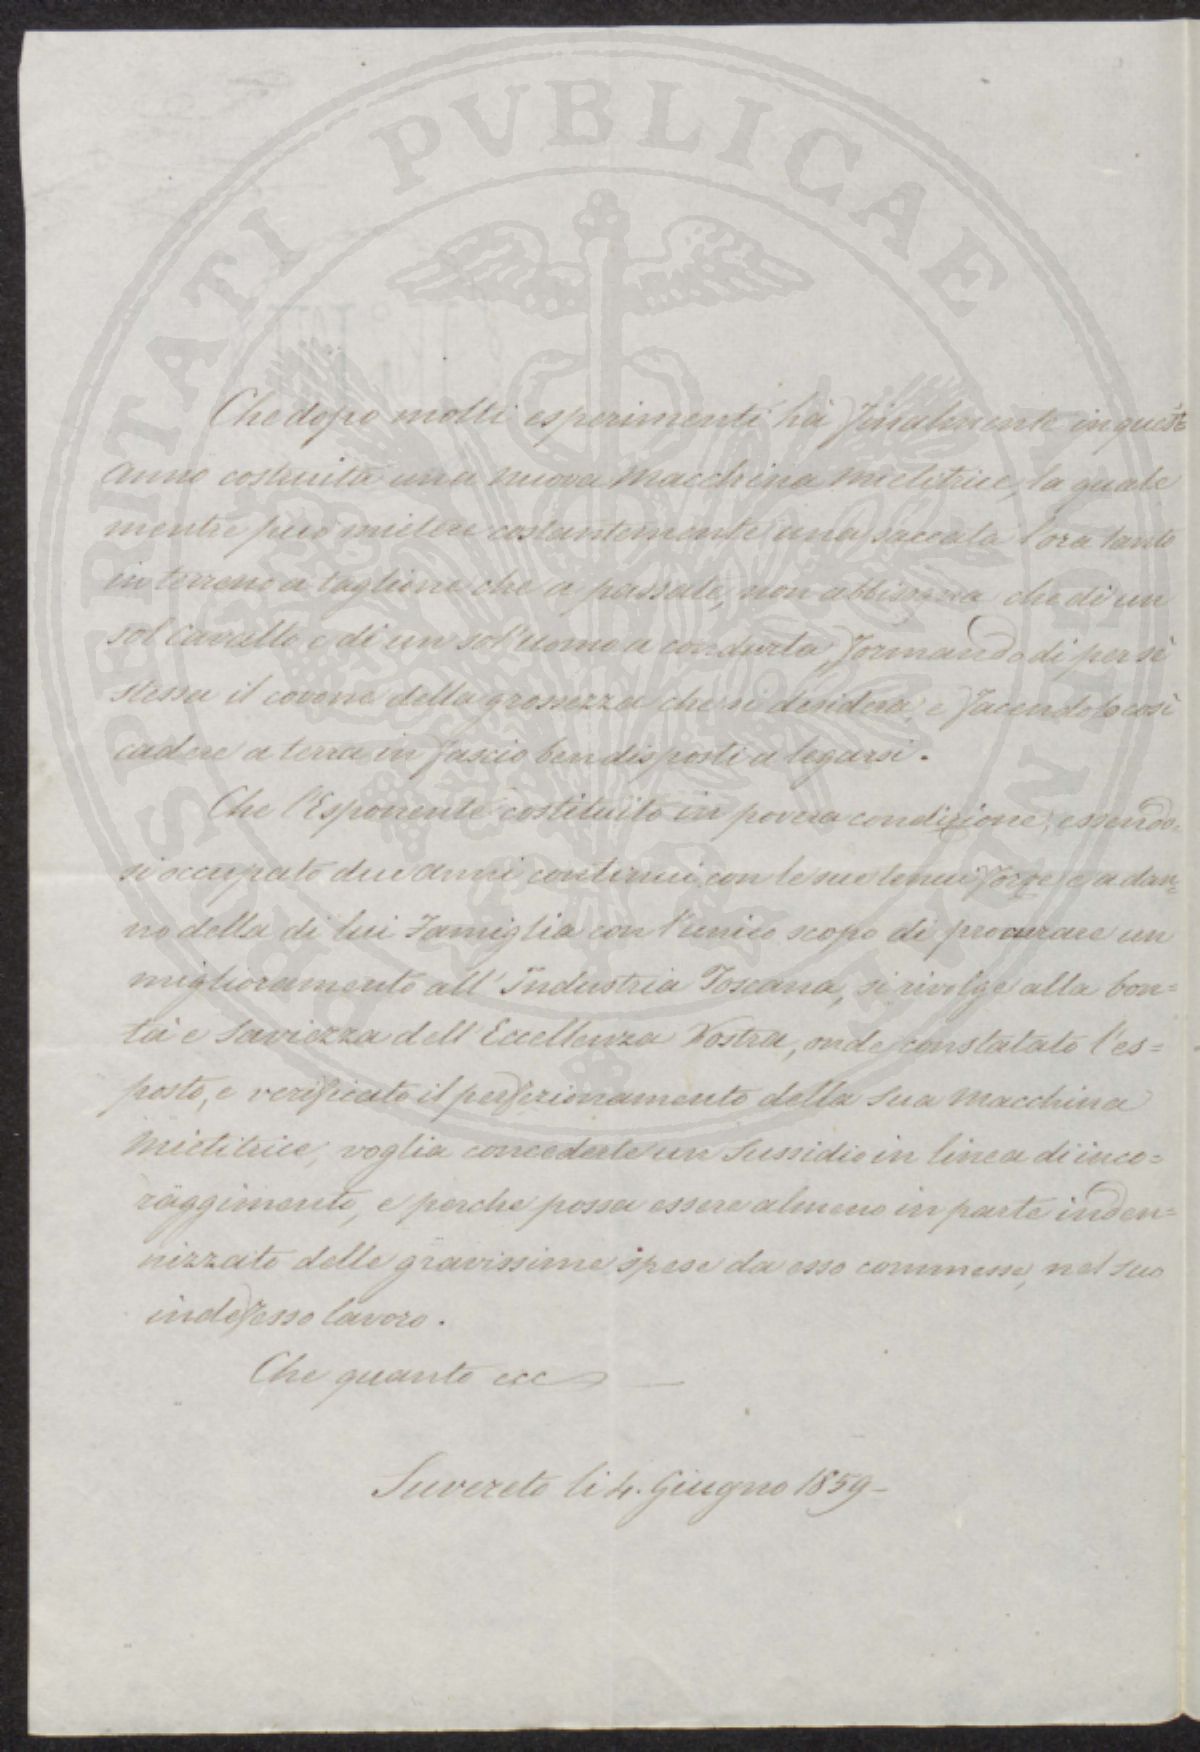 PROSPERITATI PUBLICAE AUGENDAE
Che dopo molti esperimenti hà finalmente in questo
Anno costruita una nuova Macchina Mietitrice, la quale
mentre può mietere costantemente una saccata l'ora tanto
in terreno a taglione che a passate, non abbisogna che di un
sol Cavallo e di un sol'uomo a condurla, formando di per sè
stessa il covone della grossezza che si desidera, e facendolo così
cadere a terra in fascio ben disposti a legarsi.
Che l'Esponente costituito in povera condizione, essendo-
si occupato due anni continui con le sue tenui forze e a dan=
no della di lui Famiglia con l'unico scopo di procurare un
miglioramento all'Industria Toscana, si rivolge alla bon=
tà e Saviezza dell'Eccellenza Vostra, onde constatato l'es=
posto, e verificato il perfezionamento della Sua Macchina
Mietitrice, voglia concederle un Sussidio in linea di inco=
raggimento, e perche possa essere almeno in parte inden=
nizzato delle gravissime spese da esso commesse, nel suo
indefesso lavoro.
Che quanto ecc —
Suvereto li 4. Giugno 1859-